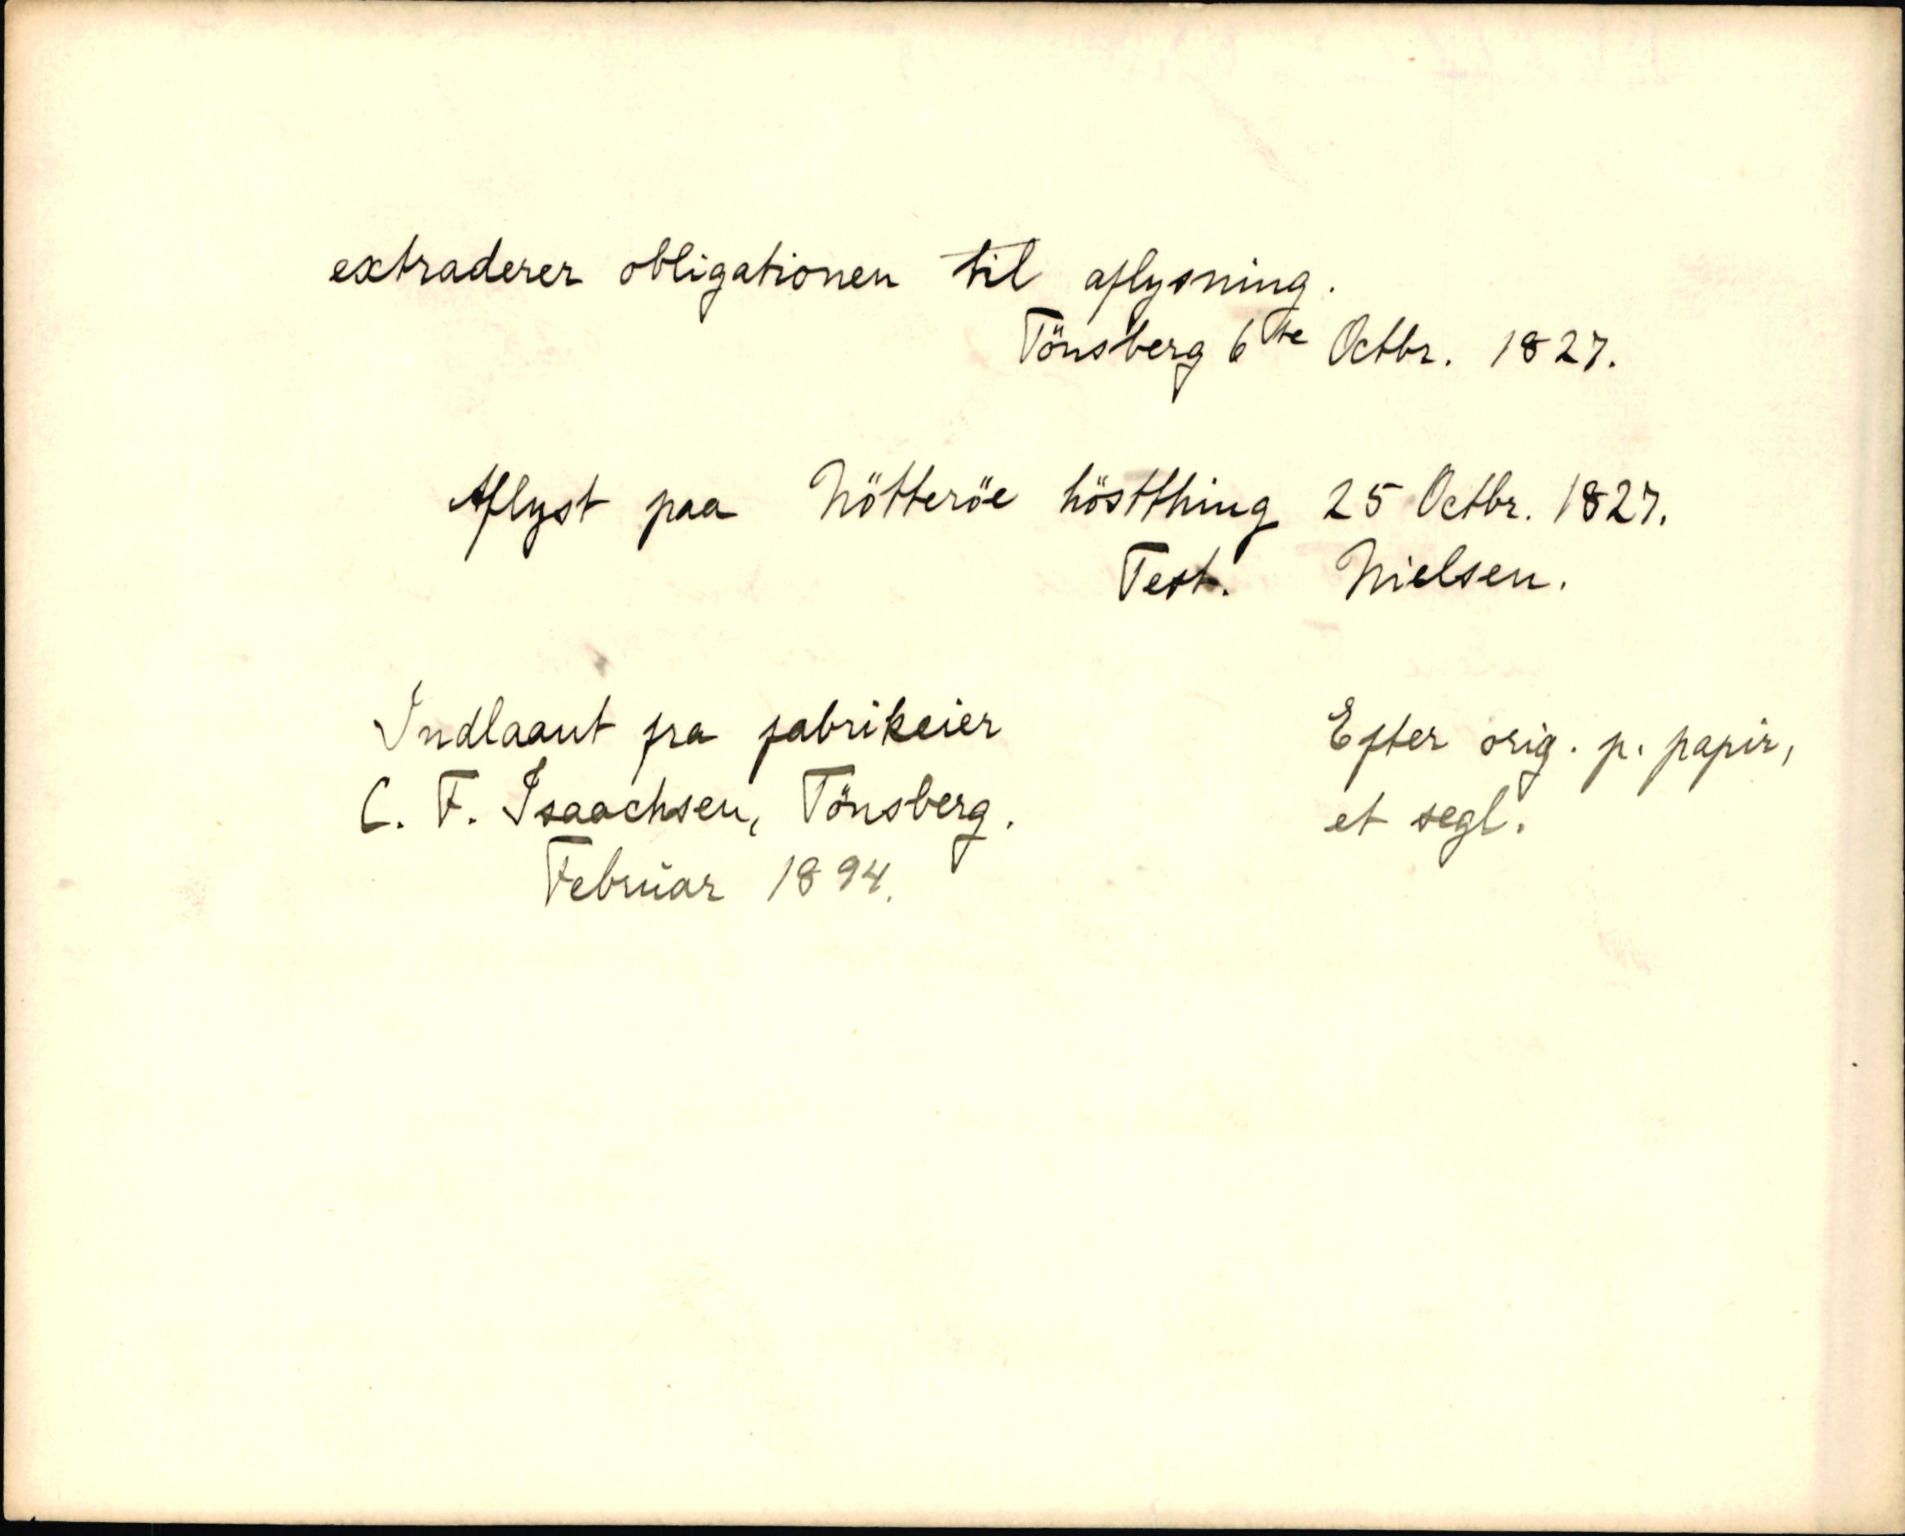 extraderer obligationen til aflysning.
Tönsberg 6te Octbr. 1827.
Aflyst paa Nötteröe höstthing 25 Octbr. 1827.
Test. Nielsen.
Indlaant fra fabrikeier
C. F. Isaachsen, Tönsberg.
Februar 1894.
Efter orig. p. papir,
et segl.